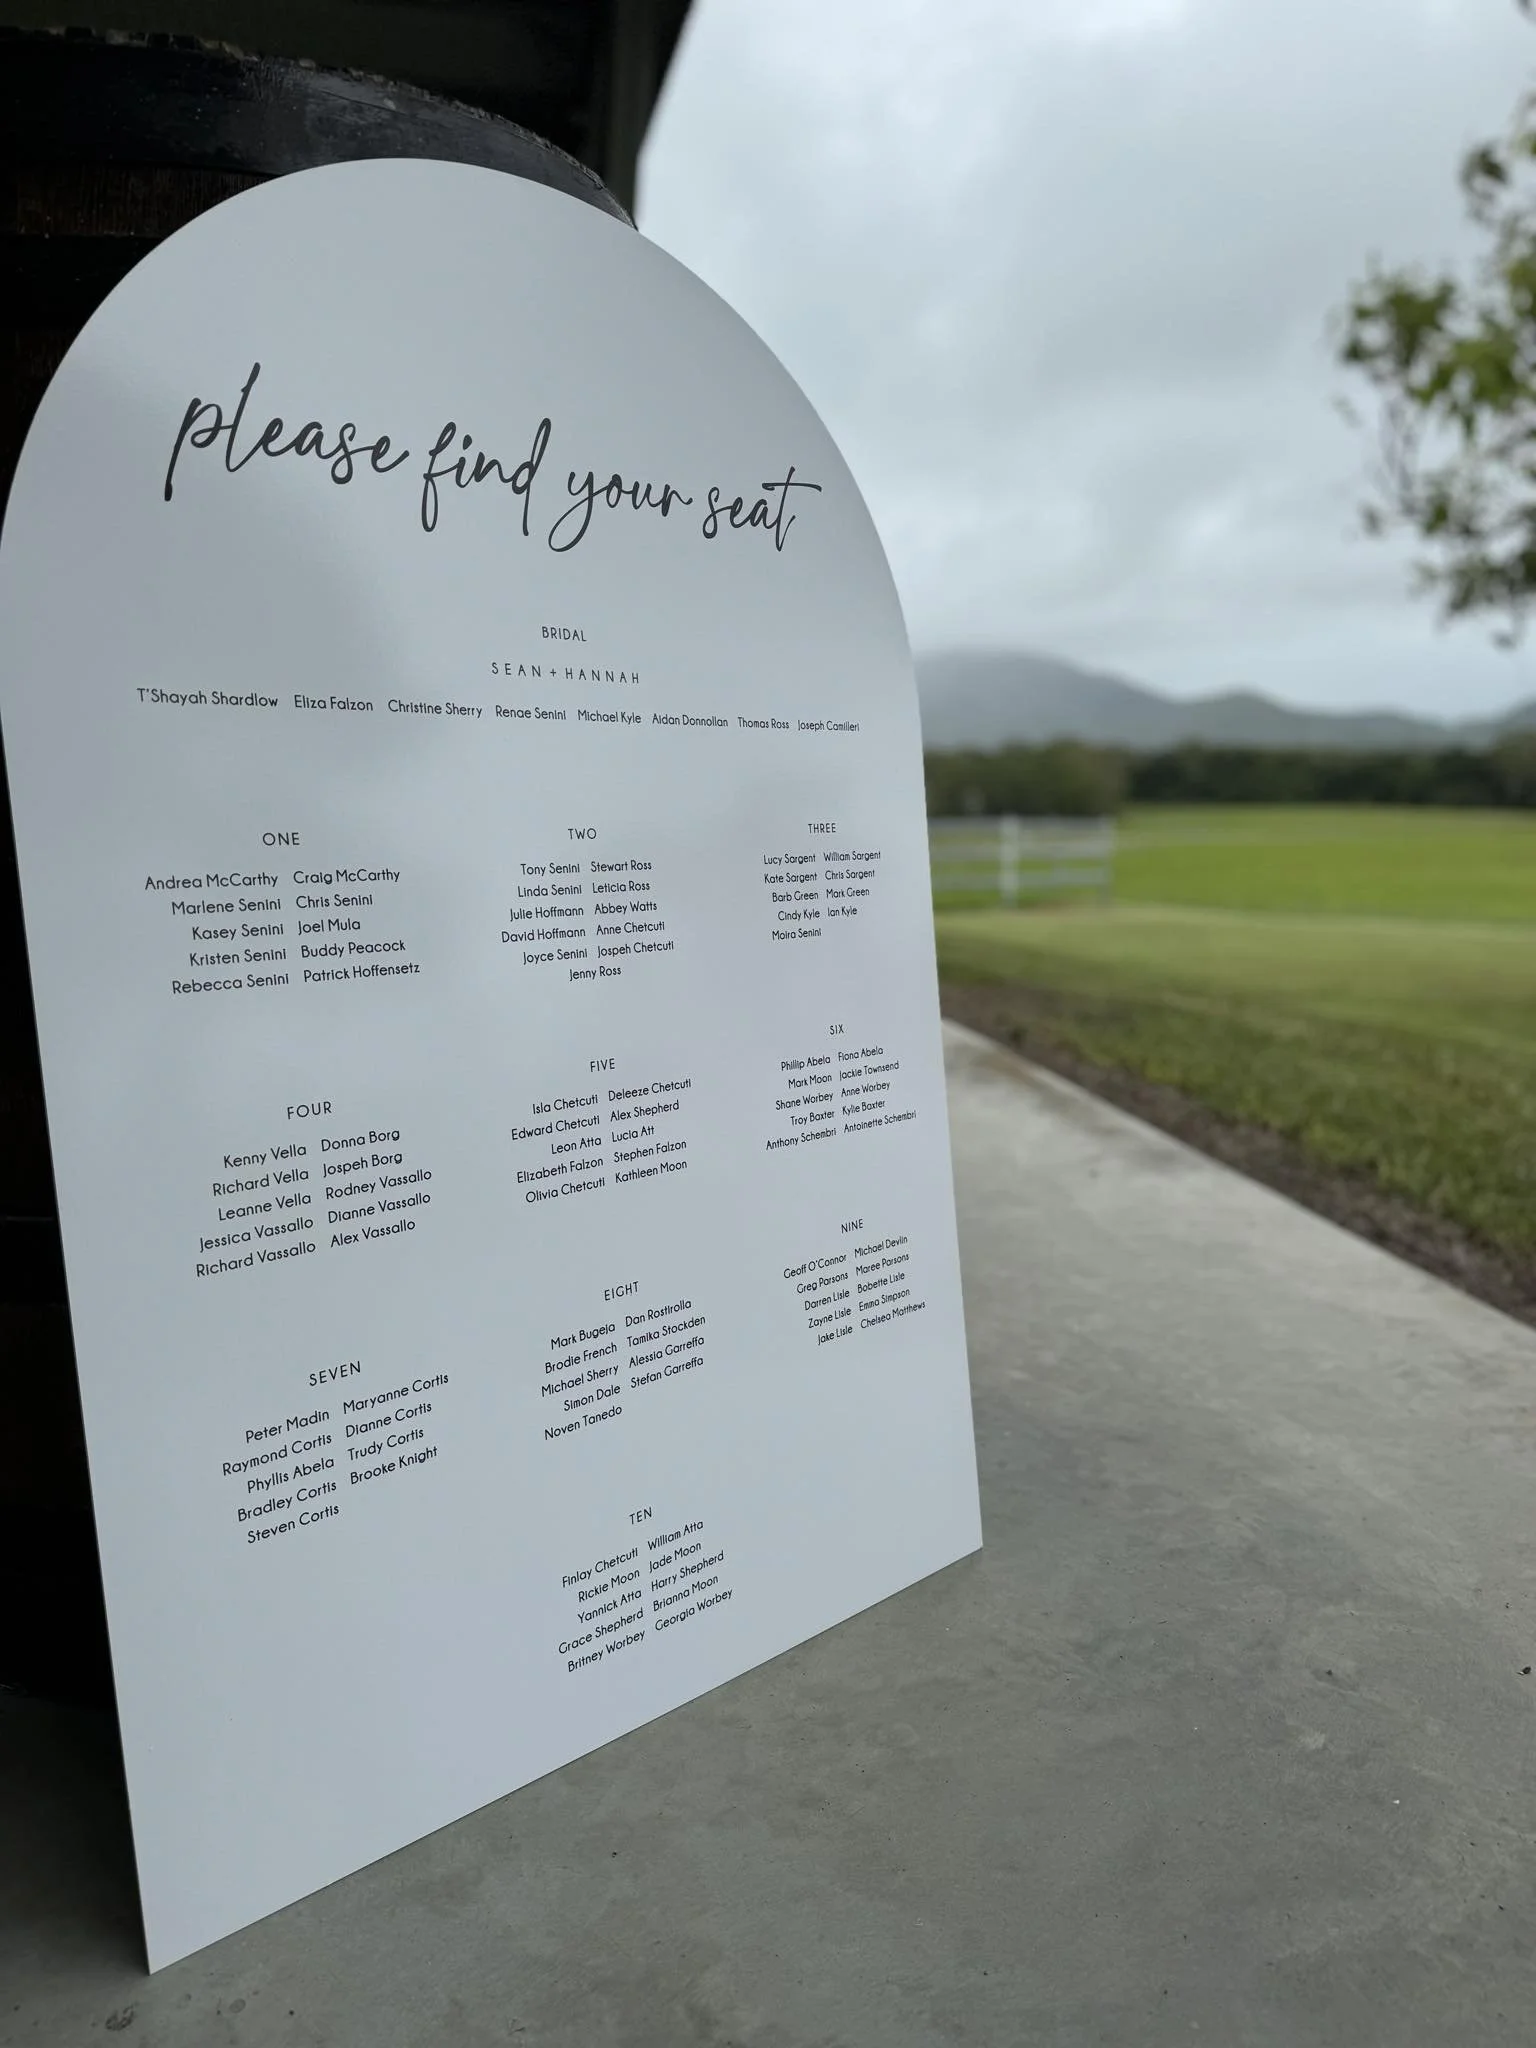 please find your seat
BRIDAL
SEAN + HANNAH
T'Shayah Shardlow Eliza Falzon Christine Sherry Renae Senini Michael Kyle Aidan Donnollan Thomas Ross Joseph Camilleri
ONE
Andrea McCarthy Craig McCarthy
Marlene Senini Chris Senini
Kasey Senini Joel Mula
Kristen Senini Buddy Peacock
Rebecca Senini Patrick Hoffensetz
TWO
Tony Senini Stewart Ross
Linda Senini Leticia Ross
Julie Hoffmann Abbey Watts
David Hoffmann Anne Chetcuti
Joyce Senini Jospeh Chetcuti
Jenny Ross
THREE
Lucy Sargent William Sargent
Kate Sargent Chris Sargent
Barb Green Mark Green
Cindy Kyle Ian Kyle
Moira Senini
FOUR
Kenny Vella Donna Borg
Richard Vella Jospeh Borg
Leanne Vella Rodney Vassallo
Jessica Vassallo Dianne Vassallo
Richard Vassallo Alex Vassallo
FIVE
Isla Chetcuti Deleeze Chetcuti
Edward Chetcuti Alex Shepherd
Leon Atta Lucia Att
Elizabeth Falzon Stephen Falzon
Olivia Chetcuti Kathleen Moon
SIX
Phillip Abela Fiona Abela
Mark Moon Jackie Townsend
Shane Worbey Anne Worbey
Troy Baxter Kylie Baxter
Anthony Schembri Antoinette Schembri
SEVEN
Peter Madin Maryanne Cortis
Raymond Cortis Dianne Cortis
Phyllis Abela Trudy Cortis
Bradley Cortis Brooke Knight
Steven Cortis
EIGHT
Mark Bugeja Dan Rostirolla
Brodie French Tamika Stockden
Michael Sherry Alessia Garreffa
Simon Dale Stefan Garreffa
Noven Tanedo
NINE
Geoff O'Connor Michael Devlin
Greg Parsons Maree Parsons
Darren Lisle Bobette Lisle
Zayne Lisle Emma Simpson
Jake Lisle Chelsea Matthews
TEN
Finlay Chetcuti William Atta
Rickie Moon Jade Moon
Yannick Atta Harry Shepherd
Grace Shepherd Brianna Moon
Britney Worbey Georgia Worbey